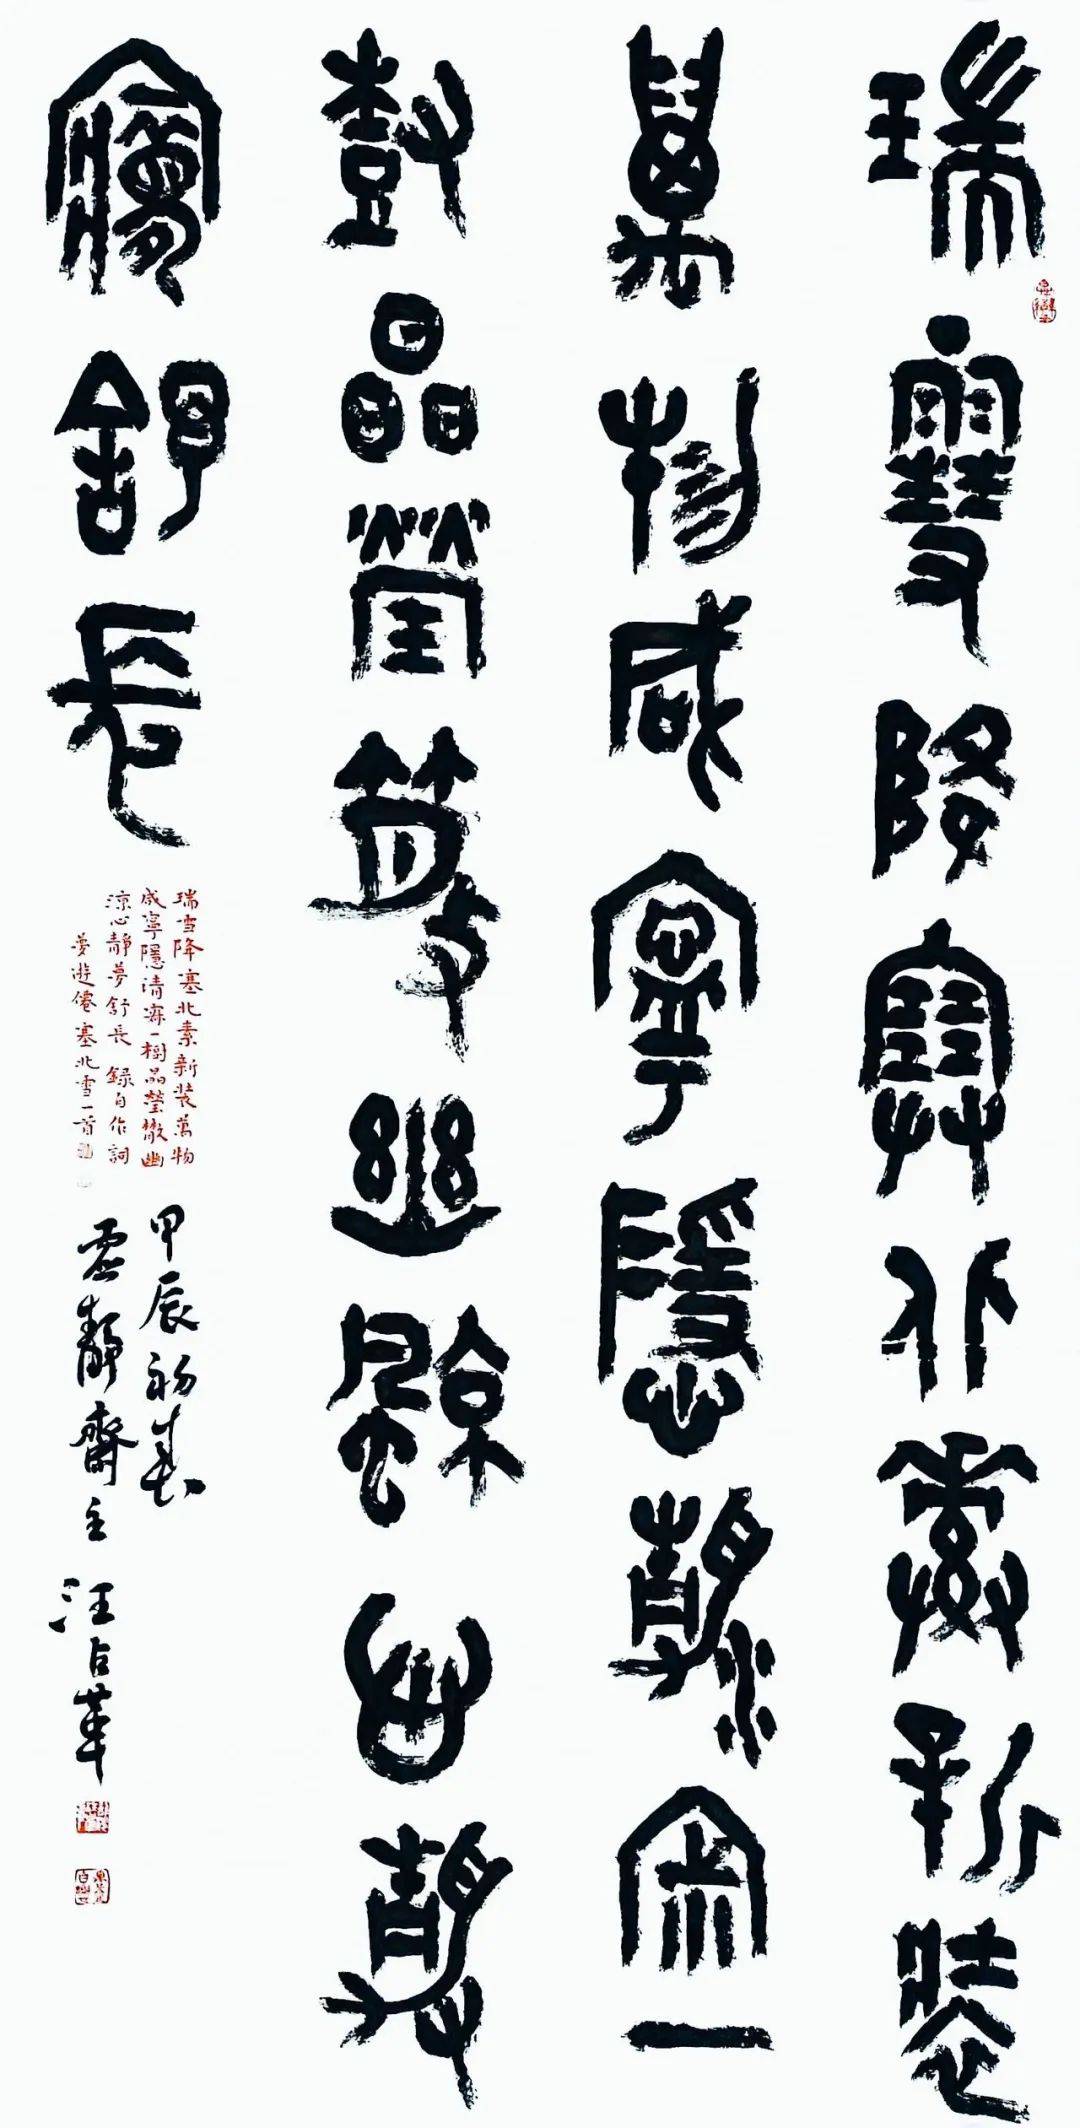 瑞雪降塞北素新裝
萬物咸寧隱清寂一
樹晶瑩散幽涼心靜
夢舒長
瑞雪降塞北素新裝萬物
咸寧隱清寂一樹晶瑩撒幽
涼心靜夢舒長 錄自作詞
夢遊僊塞北雪一首
甲辰初春
虛靜齋主 汪占革